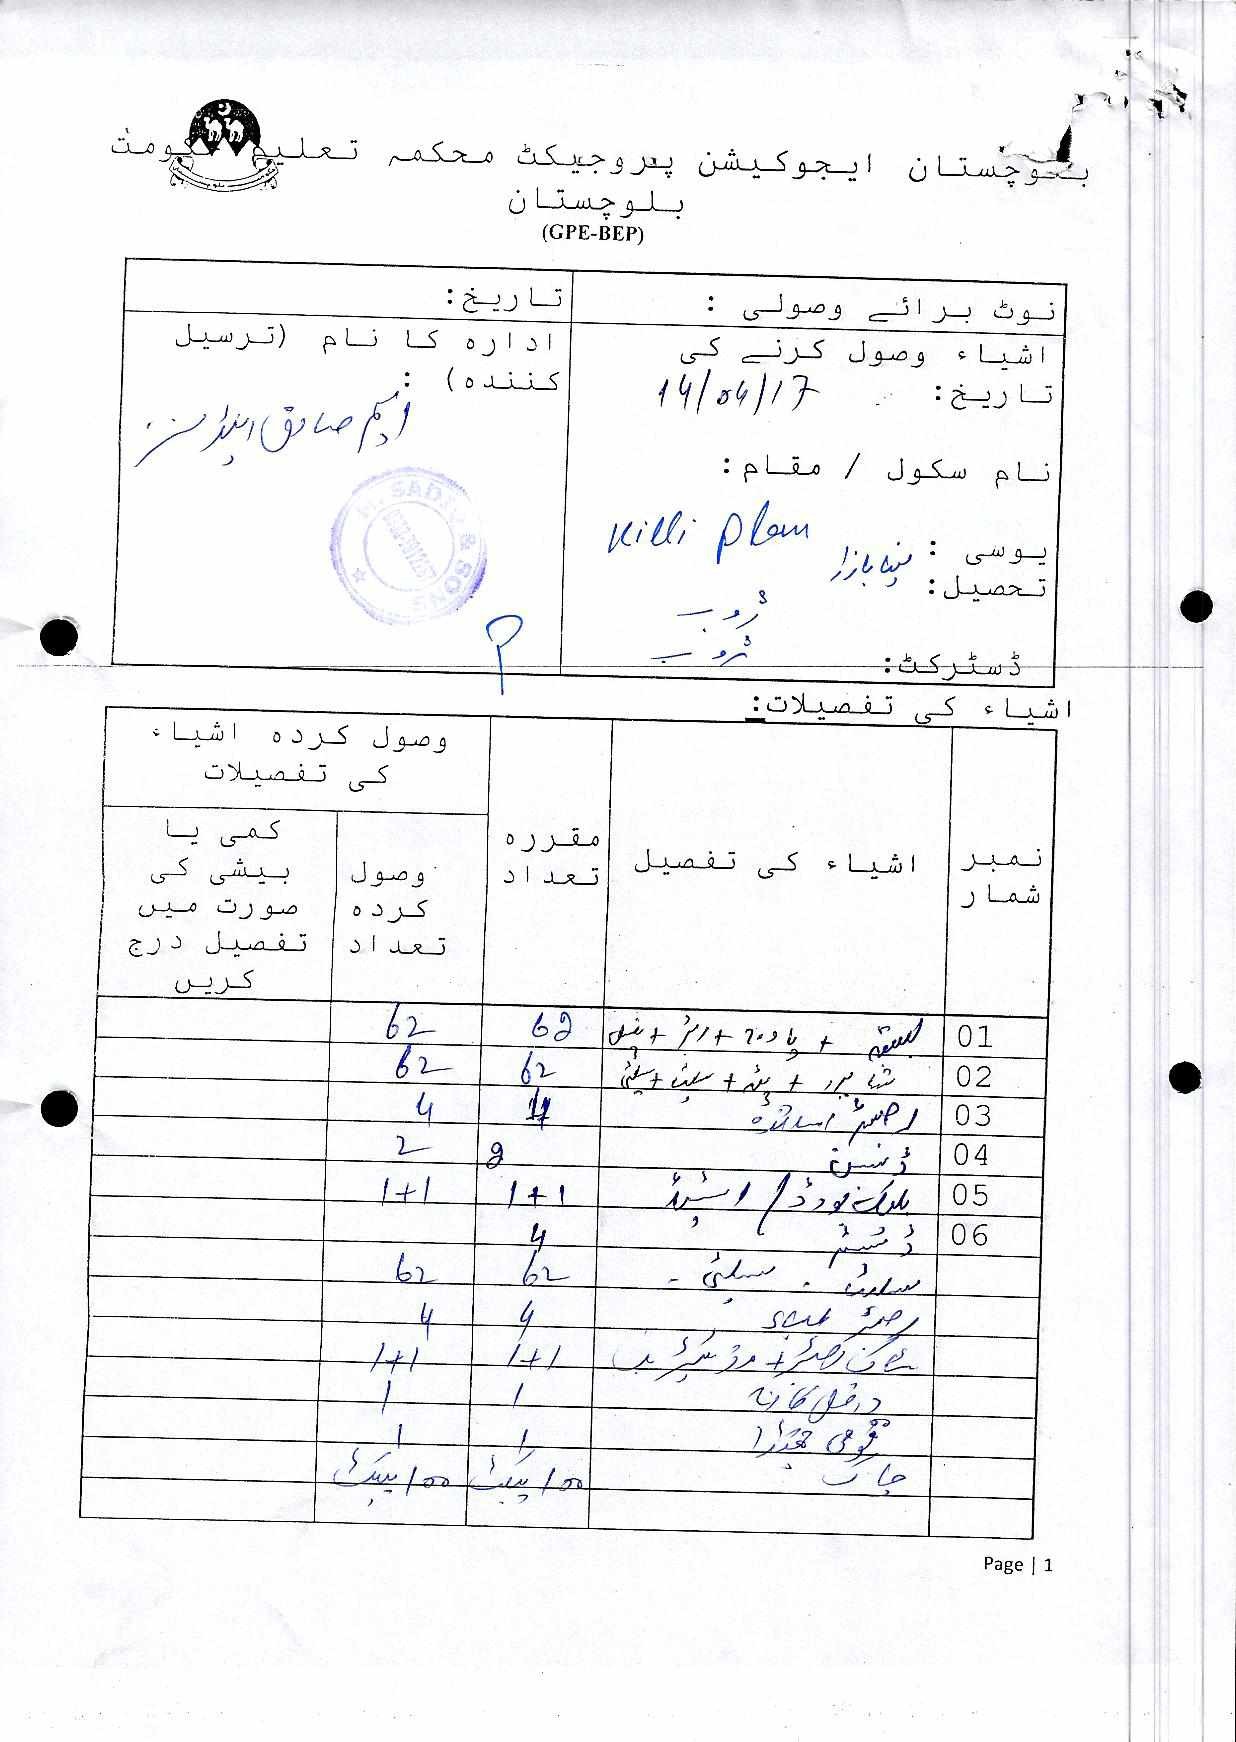 بلوچستان ایجوکیشن پروجیکٹ محکمہ تعلیم حکومت
بلوچستان
(GPE-BEP)
نوٹ برائے وصولی :
تاریخ:
اشیاء وصول کرنے کی
تاریخ: 14/04/17
نام سکول / مقام:
Killi plan
یوسی : مینا بازار
تحصیل: ژوب
ڈسٹرکٹ: ژوب
ادارہ کا نام (ترسیل
کنندہ) :
ایم صادق اینڈ سنز
M. SADIQ & SONS
اشیاء کی تفصیلات:
نمبر شمار
اشیاء کی تفصیل
مقررہ تعداد
وصول کردہ اشیاء کی تفصیلات
وصول کردہ تعداد
کمی یا بیشی کی صورت میں تفصیل درج کریں
01 بستہ + 62 62
02 شاپنر + سلیٹ + سلیٹی 62 62
03 رجسٹر اساتذہ 4 4
04 ڈسٹ بن 2 2
05 بلیک بورڈ / اسٹینڈ 1+1 1+1
06 ڈسٹر 4
سلیٹ - سلیٹی - 62 62
رجسٹر طلبہ 4 4
رجسٹر + 1+1 1+1
داخل خارجہ 1 1
قومی جھنڈا 1 1
چاک 100 پیکٹ 100 پیکٹ
Page | 1